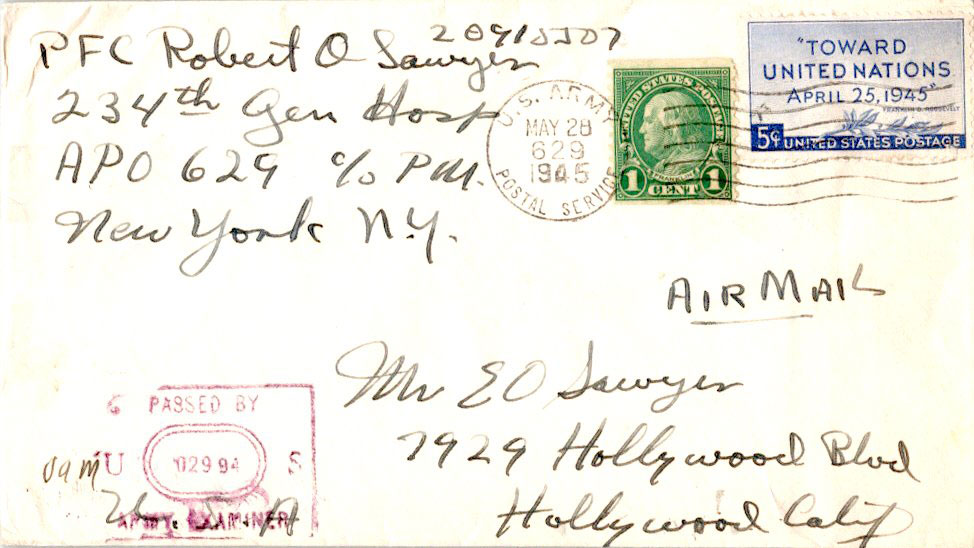 PFC Robert O Sawyer
234th Gen Hosp
APO 629 c/o P.M.
New York N.Y.
U.S. ARMY
MAY 28
629
1945
POSTAL SERVICE
UNITED STATES POSTAGE
FRANKLIN
1 CENT 1
"TOWARD
UNITED NATIONS
APRIL 25, 1945"
FRANKLIN D. ROOSEVELT
5¢ UNITED STATES POSTAGE
AIR MAIL
Mr EO Sawyer
7929 Hollywood Blvd
Hollywood Calif
PASSED BY
U 02994 S
ARMY EXAMINER